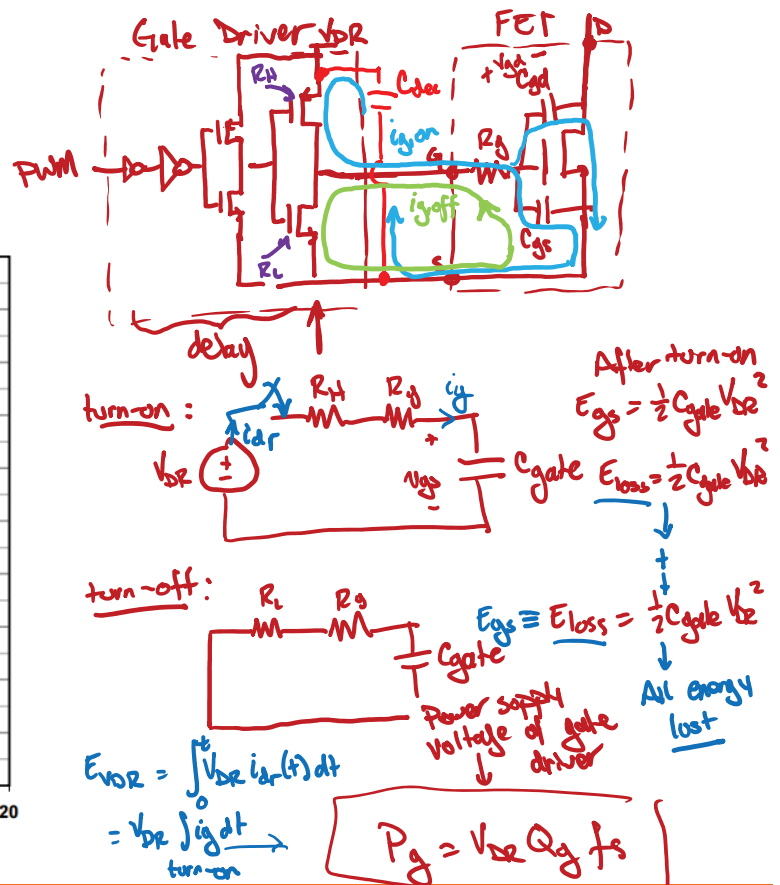 Gate Driver VDR
FET
D
RH
Cdec
+ Vgd -
Cgd
ig,on
Rg
G
PWM
ig,off
Cgs
RL
S
delay
turn-on:
RH
Rg
ig
idr
VDR
+
-
+
vgs
-
Cgate
After turn-on
Egs = 1/2 Cgate VDR²
Eloss = 1/2 Cgate VDR²
+
turn-off:
RL
Rg
Cgate
Egs ≡ Eloss = 1/2 Cgate VDR²
All energy
lost
Power sopply
voltage of gate
driver
EVDR = ∫₀ᵗ VDR idr(t) dt
= VDR ∫ ig dt
turn-on
Pg = VDR Qg fs
20